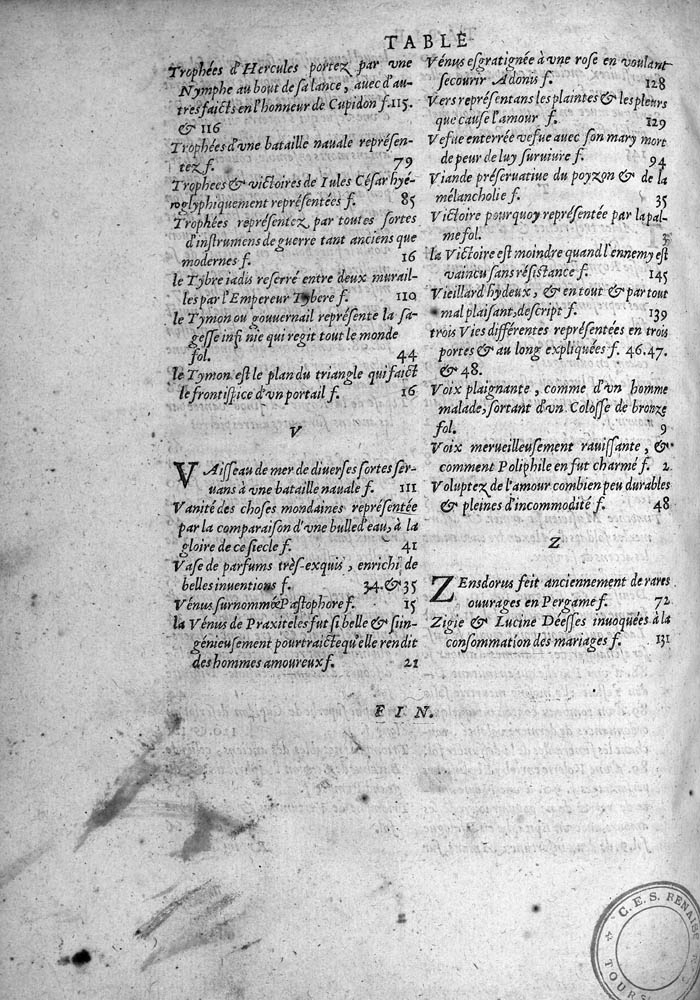 TABLE
Trophées d'Hercules portez par vne
Nymphe au bout de sa lance, auec d'au-
tres faicts en l'honneur de Cupidon f.115.
& 116
Trophées d'vne bataille nauale représen-
tez f. 79
Trophees & victoires de Iules César hyé-
roglyphiquement représentées f. 85
Trophées représentez par toutes sortes
d'instrumens de guerre tant anciens que
modernes f. 16
le Tybre iadis reserré entre deux murail-
les par l'Empereur Tybere f. 110
le Tymon ou gouuernail représente la sa-
gesse infinie qui regit tout le monde
fol. 44
le Tymon est le plan du triangle qui faict
le frontispice d'vn portail f. 16
V
VAisseau de mer de diuerses sortes ser-
uans à vne bataille nauale f. 111
Vanité des choses mondaines représentée
par la comparaison d'vne bulle d'eau, à la
gloire de ce siecle f. 41
Vase de parfums très-exquis, enrichi de
belles inuentions f. 34. & 35
Vénus surnommée Pastophore f. 15
la Vénus de Praxiteles fut si belle & si in-
génieusement pourtraicte qu'elle rendit
des hommes amoureux f. 21
Vénus esgratignée à vne rose en voulant
secourir Adonis f. 128
Vers représentans les plaintes & les pleurs
que cause l'amour f. 129
Vefue enterrée vefue auec son mary mort
de peur de luy suruiure f. 94
Viande préseruatiue du poyzon & de la
mélancholie f. 35
Victoire pourquoy représentée par la pal-
me fol. 3
la Victoire est moindre quand l'ennemy est
vaincu sans résistance f. 145
Vieillard hydeux, & en tout & par tout
mal plaisant, descript f. 139
trois Vies différentes représentées en trois
portes & au long expliquées f. 46.47.
& 48.
Voix plaignante, comme d'vn homme
malade, sortant d'vn Colosse de bronze
fol. 9
Voix merueilleusement rauissante, &
comment Poliphile en fut charmé f. 2
Voluptez de l'amour combien peu durables
& pleines d'incommodité f. 48
Z
ZEnsdorus feit anciennement de rares
ouurages en Pergame f. 72
Zigie & Lucine Déesses inuoquées à la
consommation des mariages f. 131
FIN.
C.E.S. RENAIS
TOURS